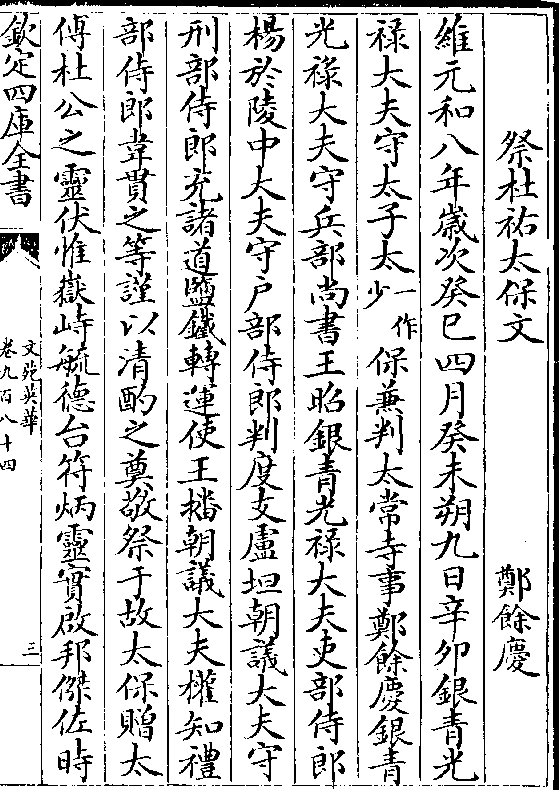 祭杜祐太保文　鄭餘慶
維元和八年歲次癸巳四月癸未朔九日辛卯銀青光
祿大夫守太子太一作少保兼判太常寺事鄭餘慶銀青
光祿大夫守兵部尚書王昭銀青光祿大夫吏部侍郎
楊於陵中大夫守戸部侍郎判度支盧坦朝議大夫守
刑部侍郎充諸道鹽鐵轉運使王播朝議大夫權知禮
部侍郎韋貫之等謹以清酌之奠敬祭于故太保贈太
傅杜公之靈伏惟嶽峙毓德台符炳靈實啟邦傑佐時
欽定四庫全書
文苑英華
卷九百八十四
三